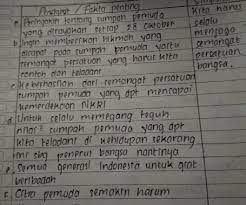 Pendapat / Fakta penting
a. Peringatan tentang sumpah pemuda
yang dirayakan setiap 28 oktober
b. Ingin memberikan hikmah yang
didapat pada sumpah pemuda yaitu
semangat persatuan yang harus kita
contoh dan teladani
c. Keberhasilan dari semangat persatuan
sumpah pemuda yang dpt mencapai
kemerdekaan NKRI
d. Untuk selalu memegang teguh
nilai² sumpah pemuda yang dpt
kita teladani di kehidupan sekarang
ini sbg penerus bangsa nantinya
e. Semua generasi Indonesia untuk giat
beribadah
f. Citra pemuda semakin harum
kita harus
selalu
menjaga
semangat
persatuan
bangsa.